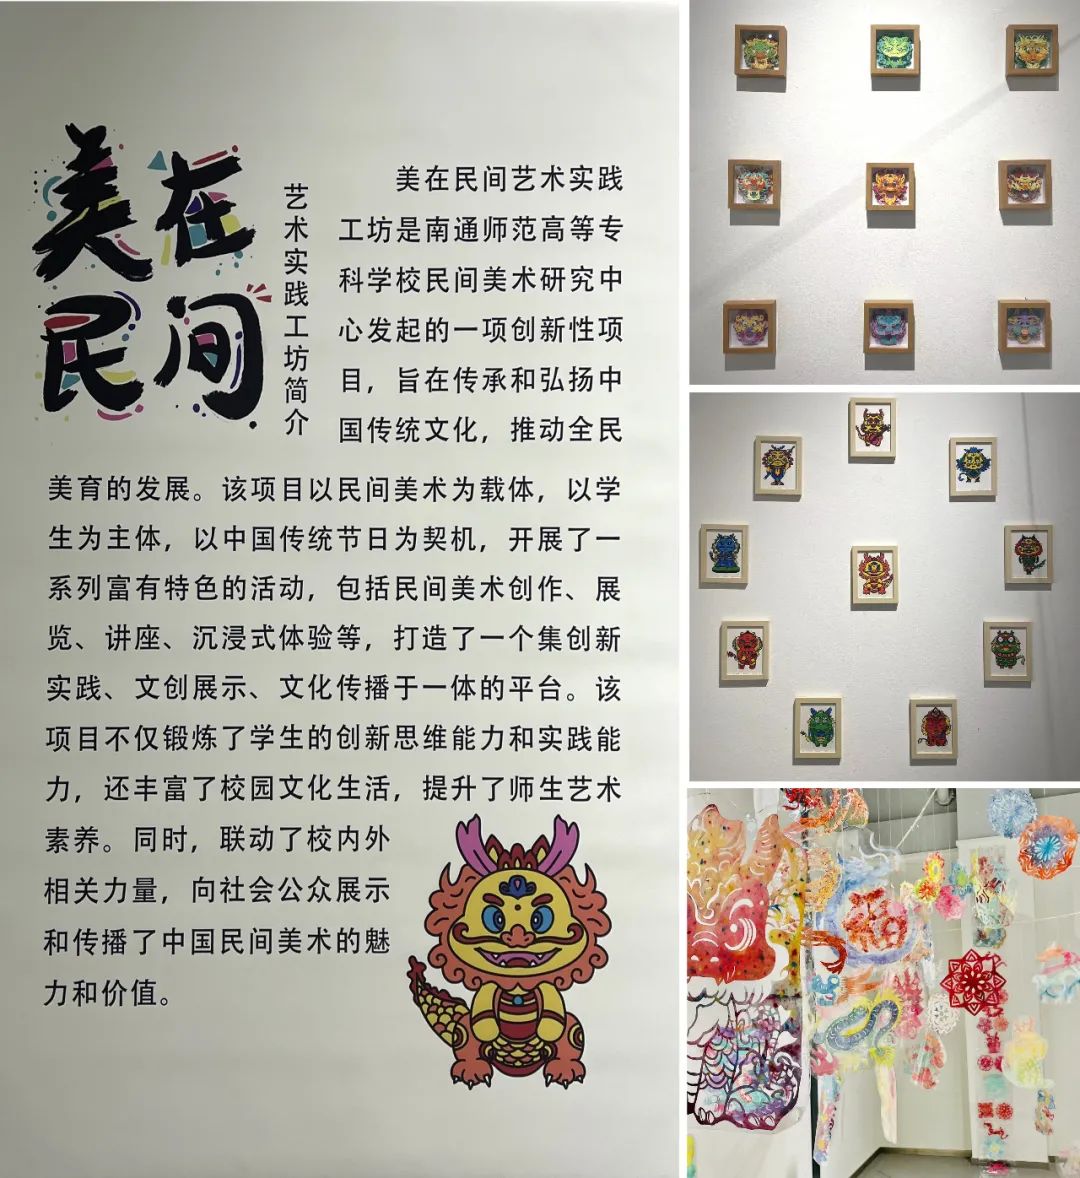 美在
民间
艺术实践工坊简介
美在民间艺术实践
工坊是南通师范高等专
科学校民间美术研究中
心发起的一项创新性项
目，旨在传承和弘扬中
国传统文化，推动全民
美育的发展。该项目以民间美术为载体，以学
生为主体，以中国传统节日为契机，开展了一
系列富有特色的活动，包括民间美术创作、展
览、讲座、沉浸式体验等，打造了一个集创新
实践、文创展示、文化传播于一体的平台。该
项目不仅锻炼了学生的创新思维能力和实践能
力，还丰富了校园文化生活，提升了师生艺术
素养。同时，联动了校内外
相关力量，向社会公众展示
和传播了中国民间美术的魅
力和价值。
福